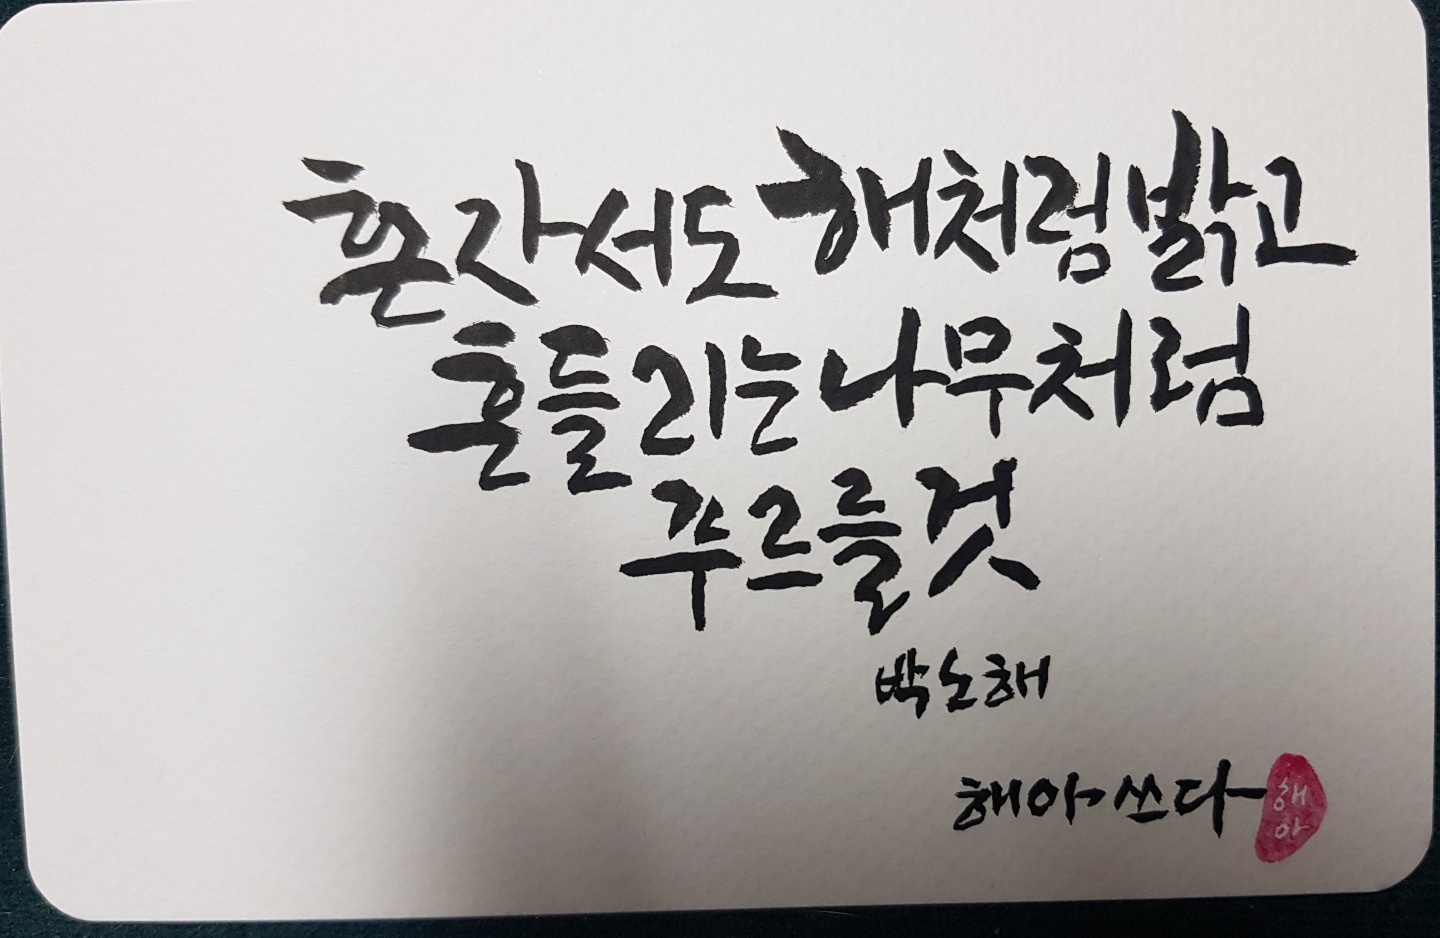 혼자서도 해처럼 밝고
흔들리는 나무처럼
푸르를 것
박노해
해아 쓰다
해
아